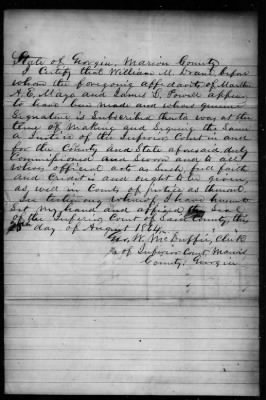 State of Georgia, Marion County
I Certify that William M. Brant, before
whom the foregoing affidavits of Martha
A. E. Mayo and James L. Powell appear
to have been made and whose genuine
Signature is Subscribed thereto was at the
time of Making and Signing the Same
a Justice of the Superior Court in and
for the County and State aforesaid duly
Commissioned and Sworn and to all
whose official acts as Such full faith
and Credit is and ought to be given
as well in Courts of justice as thereout.
In testimony whereof I have hereunto
Set my hand and affixed the Seal
of the Superior Court of Said County, this
day of August 1864.
Geo. W. McDuffie, Clerk
of Superior Court Marion
County, Georgia